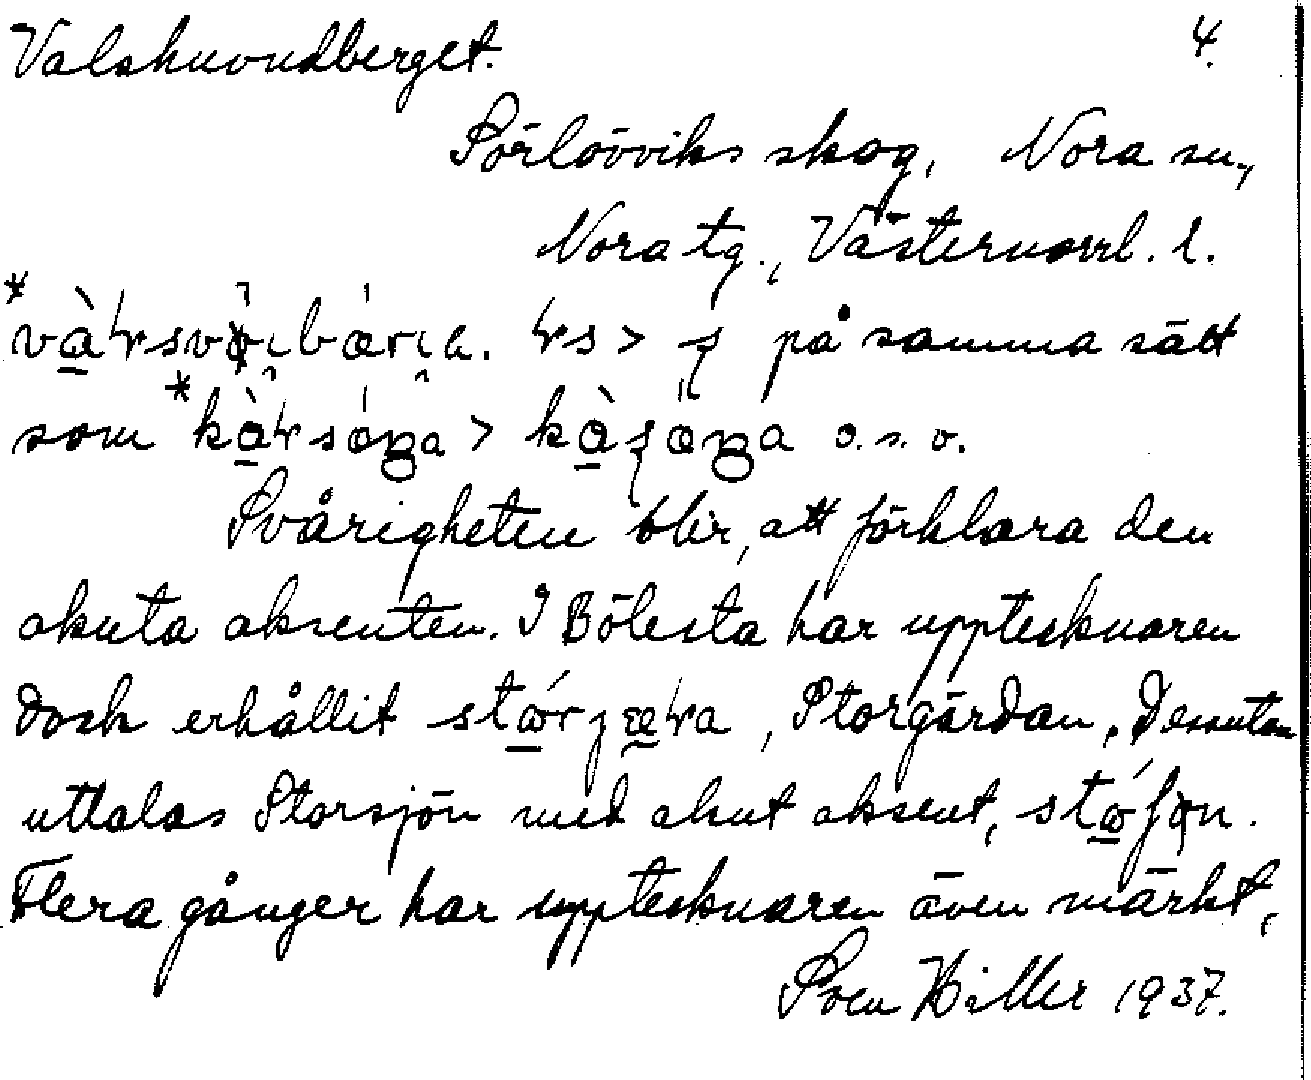 Valskuvudberget. 4.
Sörlövviks skog, Nora sn,
Nora tg., Västernorrl. l.
på samma sätt
som > o. s. v.
Svårigheten blir, att förklara den
akuta aksenten. I Bölesta har upptecknaren
dock erhållit , Storgärdan. Dessutom
uttalas Storsjön med akut aksent, .
Flera gånger har upptecknaren även märkt,
Sven Hiller 1937.